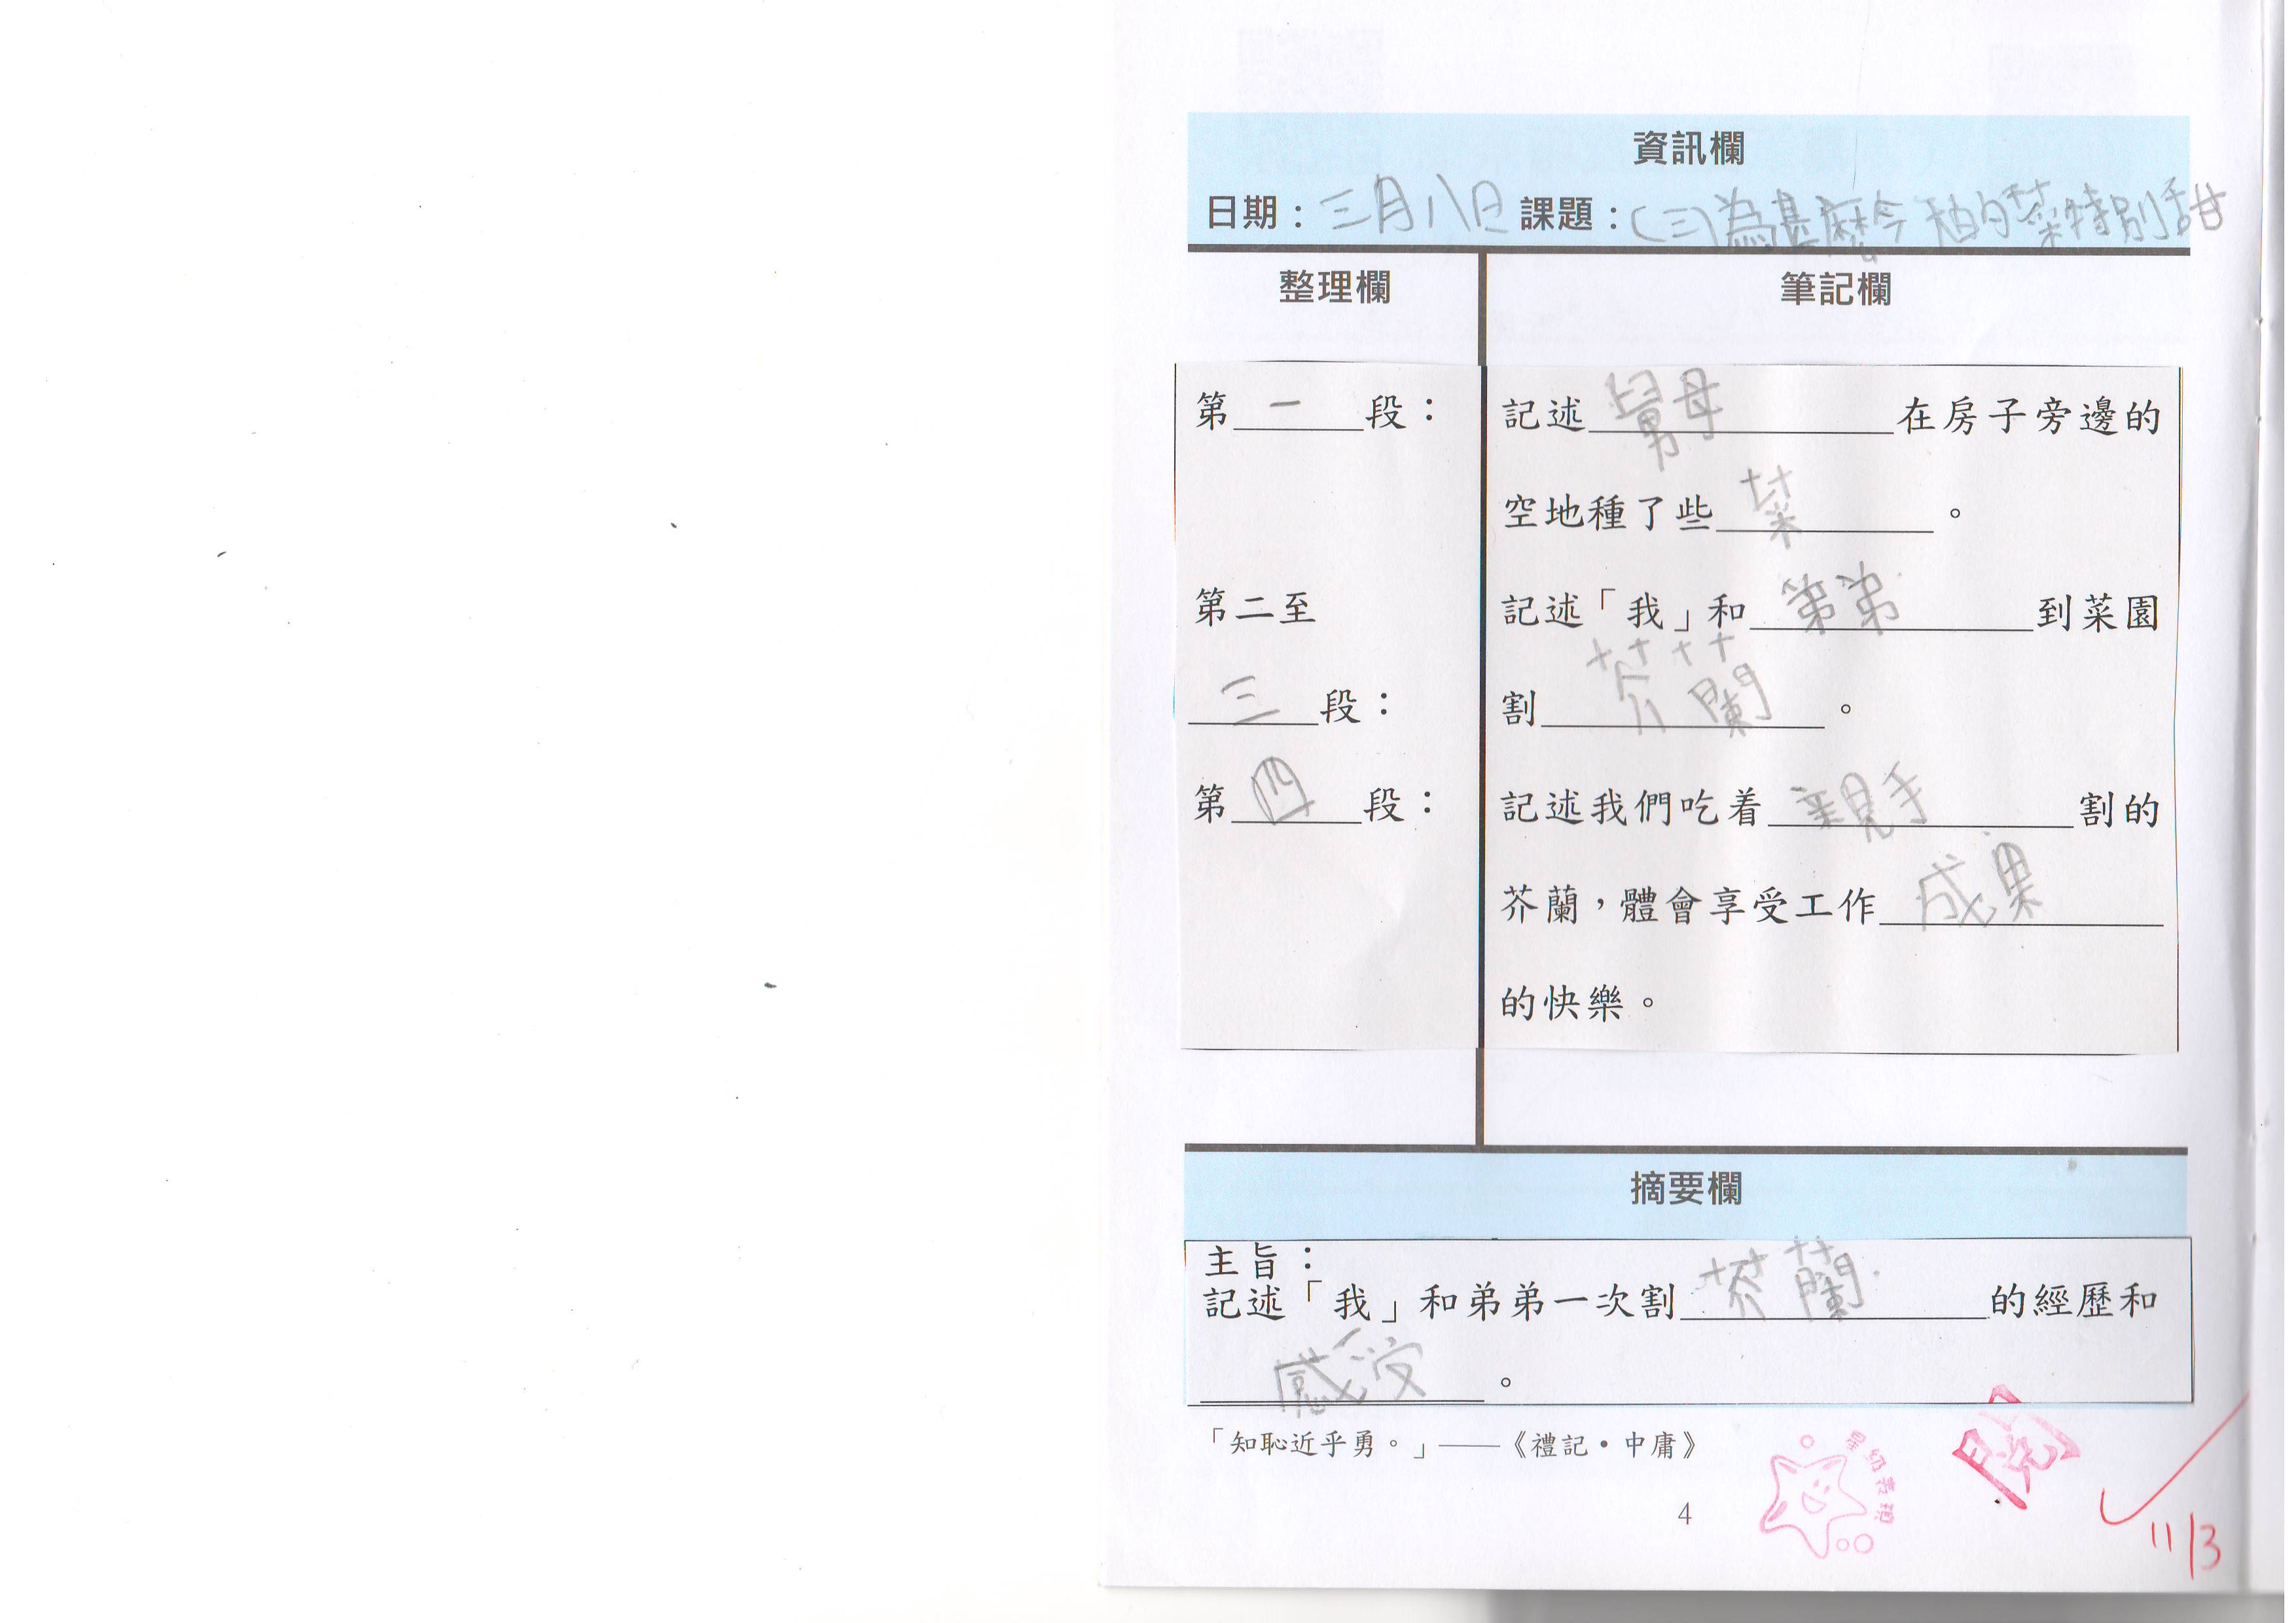 資訊欄
日期：三月八日 課題：(三)為甚麼今 的菜特別甜
整理欄 筆記欄
第一段： 記述舅母在房子旁邊的
空地種了些菜。
第二至 記述「我」和弟弟到菜園
三段： 割芥蘭。
第四段： 記述我們吃着親手割的
芥蘭，體會享受工作成果
的快樂。
摘要欄
主旨：
記述「我」和弟弟一次割芥蘭的經歷和
感受。
「知恥近乎勇。」——《禮記·中庸》
4
閱
11/3